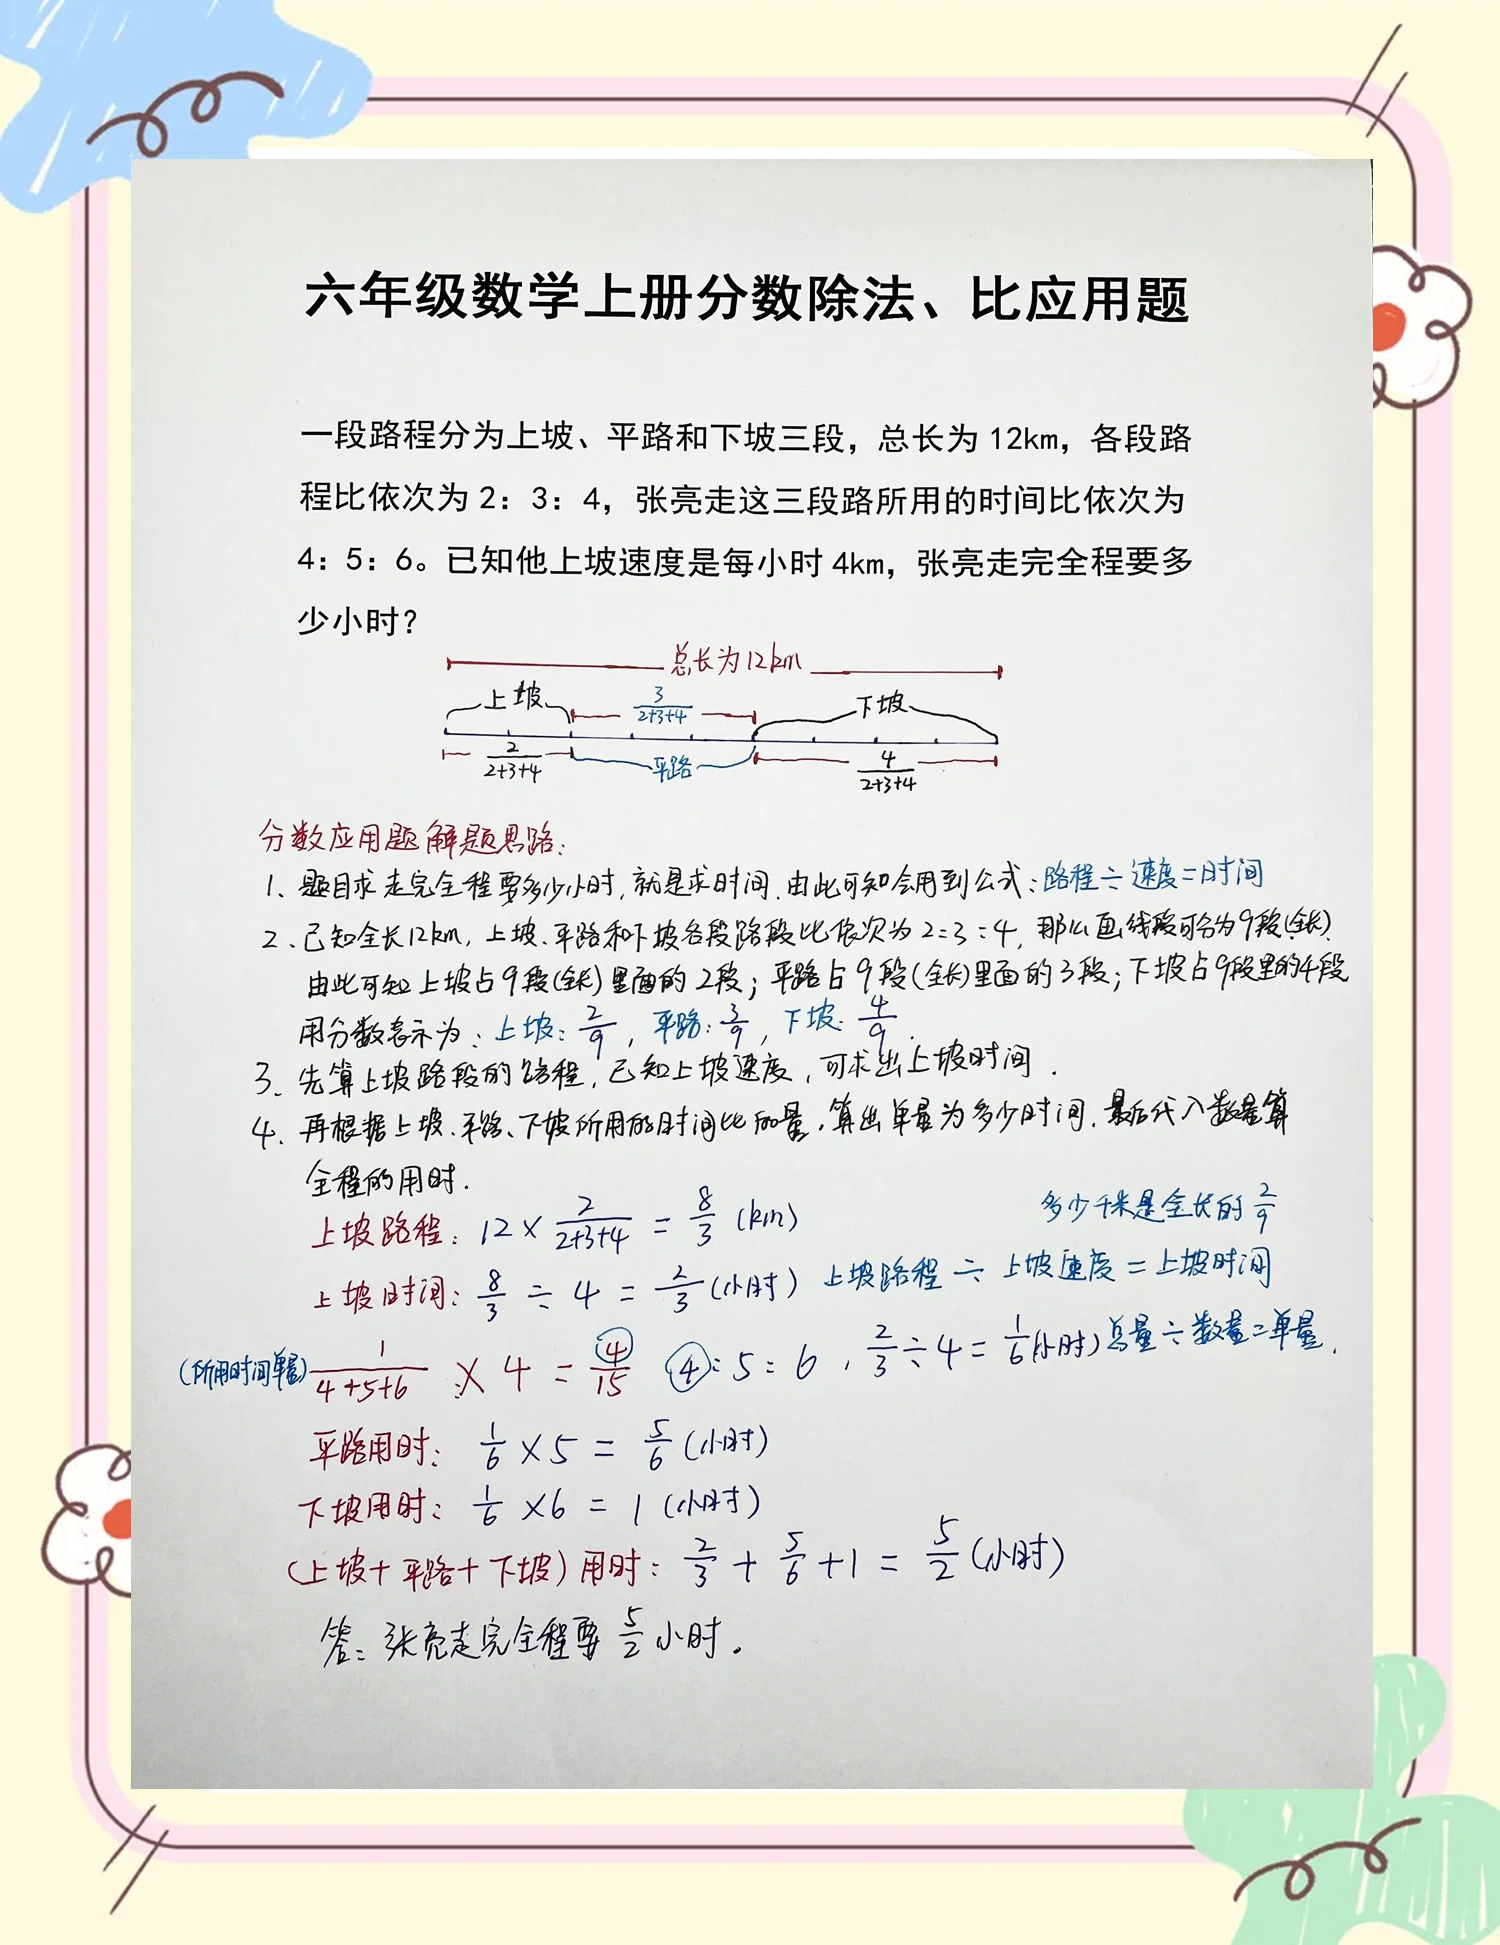 六年级数学上册分数除法、比应用题
一段路程分为上坡、平路和下坡三段，总长为 12km，各段路
程比依次为 2：3：4，张亮走这三段路所用的时间比依次为
4：5：6。已知他上坡速度是每小时 4km，张亮走完全程要多
少小时？
总长为12km
上坡 3/(2+3+4) 下坡
2/(2+3+4) 平路 4/(2+3+4)
分数应用题解题思路：
1、题目求走完全程要多少小时，就是求时间.由此可知会用到公式：路程÷速度=时间
2、已知全长12km，上坡、平路和下坡各段路段比依次为2:3:4，那么画线段可分为9段(全长).
由此可知上坡占9段(全长)里面的2段；平路占9段(全长)里面的3段；下坡占9段里的4段
用分数表示为：上坡：2/9，平路：3/9，下坡：4/9.
3、先算上坡路段的路程，已知上坡速度，可求出上坡时间.
4、再根据上坡、平路、下坡所用的时间比的量，算出单量为多少时间.最后代入数量算
全程的用时.
上坡路程：12×2/(2+3+4)=8/3(km) 多少千米是全长的2/9
上坡时间：8/3÷4=2/3(小时) 上坡路程÷上坡速度=上坡时间
(所用时间单量) 1/(4+5+6)×4=4/15 4:5:6，2/3÷4=1/6(小时) 总量÷数量=单量.
平路用时：1/6×5=5/6(小时)
下坡用时：1/6×6=1(小时)
(上坡+平路+下坡)用时：2/3+5/6+1=5/2(小时)
答：张亮走完全程要5/2小时.